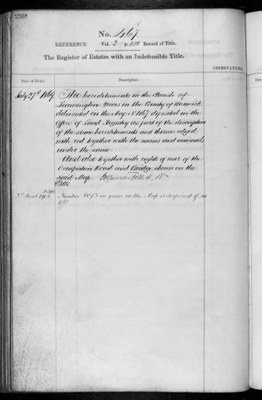 No. 467.
REFERENCE Vol. 2 p. Record of Title.
The Register of Estates with an Indefeasible Title.
OBSERVATIONS.
Date of Entry. Description.
July 27th 1867 The hereditaments in the Parish of
Leamington Priors in the County of Warwick
delineated on the Map No 467 deposited in the
Office of Land Registry as part of the description
of the same hereditaments and thereon edged
with red together with the mines and minerals
under the same
And also together with right of user of the
Occupation Road and Bridge shewn on the
said Map.
Number in green on the Map